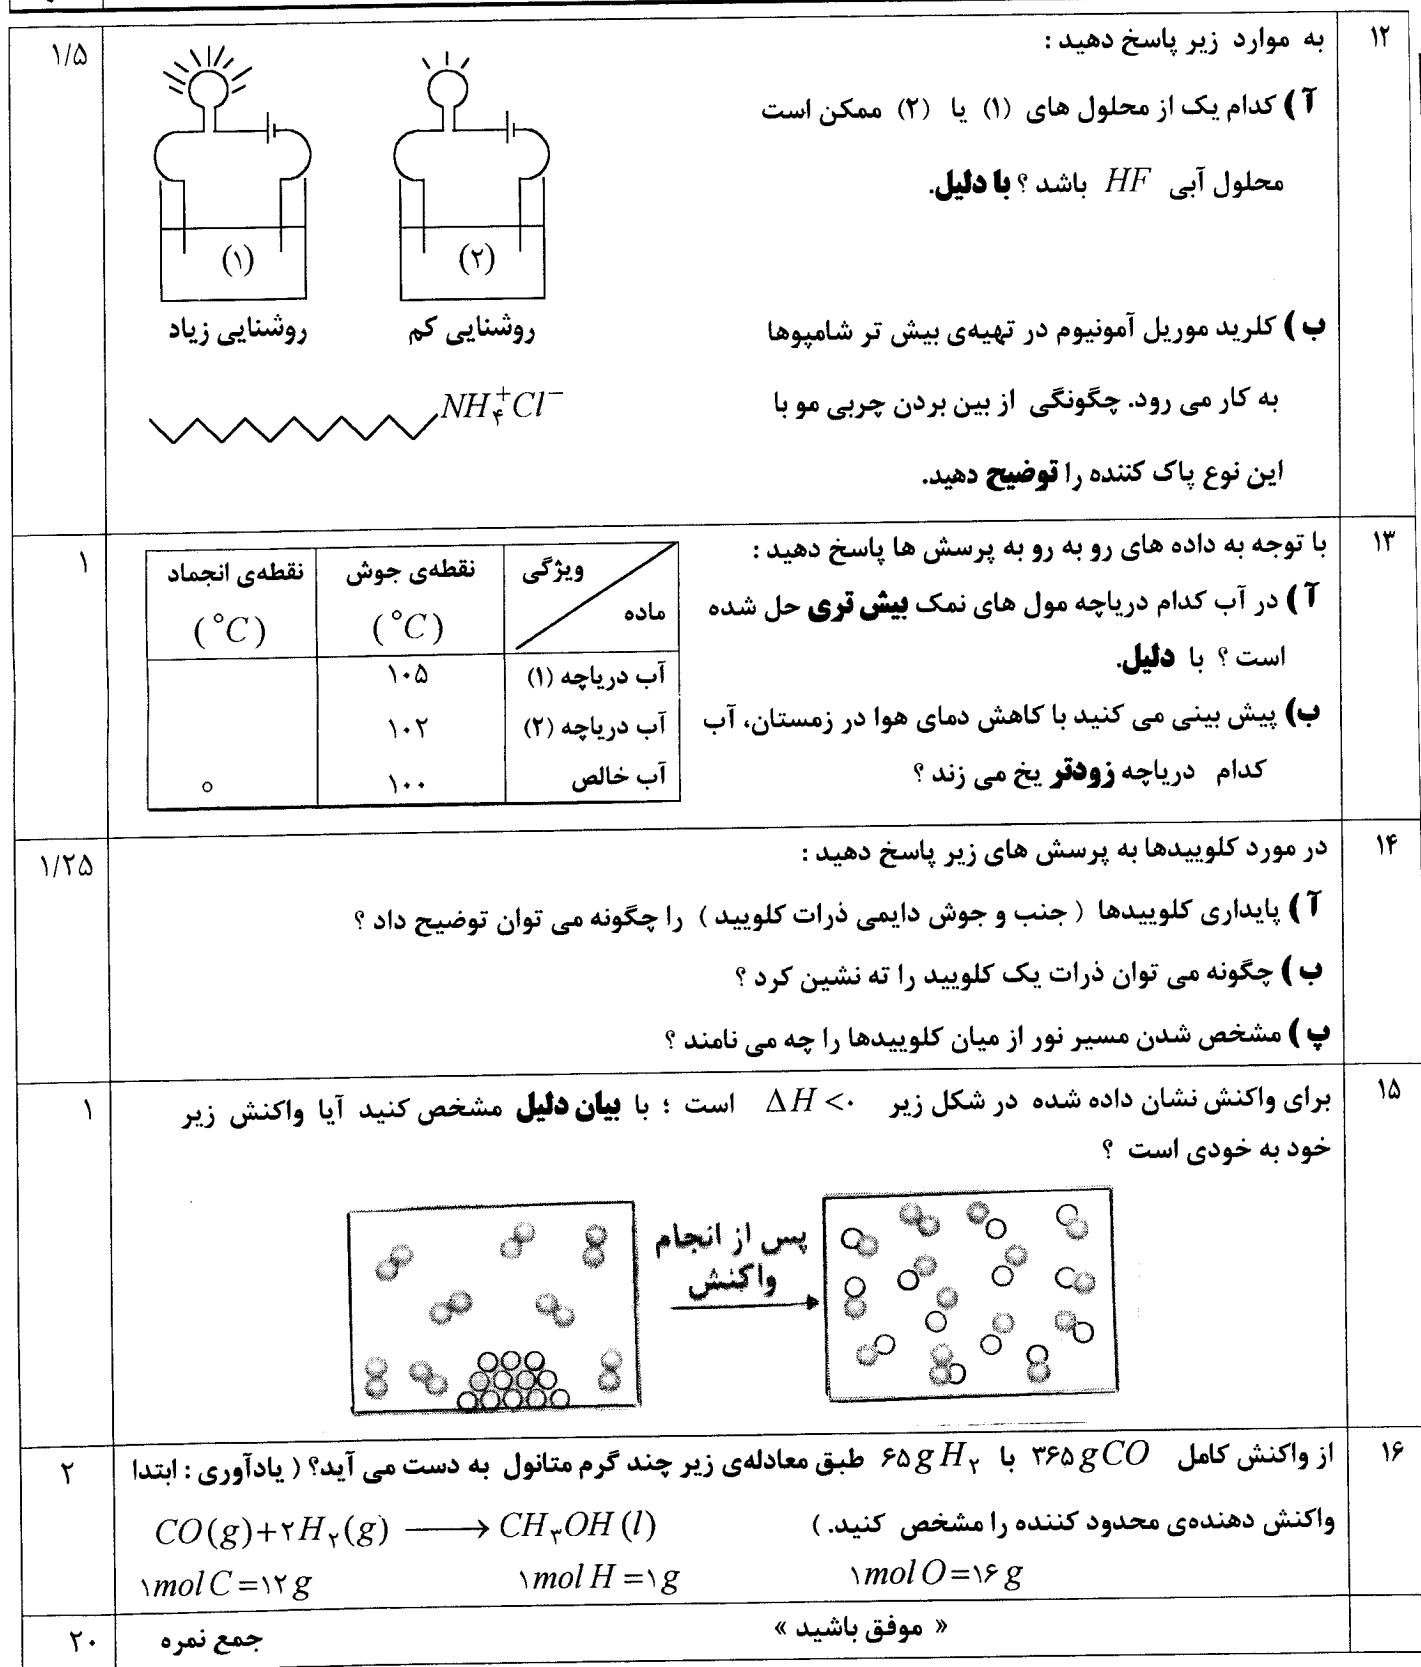 ۱۲
به موارد زیر پاسخ دهید :
۱/۵
آ ) کدام یک از محلول های (۱) یا (۲) ممکن است
محلول آبی HF باشد ؟ با دلیل.
(۱)
(۲)
روشنایی زیاد
روشنایی کم
ب ) کلرید موریل آمونیوم در تهیه‌ی بیش تر شامپوها
به کار می رود. چگونگی از بین بردن چربی مو با
این نوع پاک کننده را توضیح دهید.
NH۴+Cl−
۱۳
با توجه به داده های رو به رو به پرسش ها پاسخ دهید :
۱
آ ) در آب کدام دریاچه مول های نمک بیش تری حل شده
است ؟ با دلیل.
ب) پیش بینی می کنید با کاهش دمای هوا در زمستان، آب
کدام دریاچه زودتر یخ می زند ؟
ویژگی
ماده
نقطه‌ی جوش (°C)
نقطه‌ی انجماد (°C)
آب دریاچه (۱) ۱۰۵
آب دریاچه (۲) ۱۰۲
آب خالص ۱۰۰ ۰
۱۴
در مورد کلوییدها به پرسش های زیر پاسخ دهید :
۱/۲۵
آ ) پایداری کلوییدها ( جنب و جوش دایمی ذرات کلویید ) را چگونه می توان توضیح داد ؟
ب ) چگونه می توان ذرات یک کلویید را ته نشین کرد ؟
پ ) مشخص شدن مسیر نور از میان کلوییدها را چه می نامند ؟
۱۵
برای واکنش نشان داده شده در شکل زیر ΔH <۰ است ؛ با بیان دلیل مشخص کنید آیا واکنش زیر
۱
خود به خودی است ؟
پس از انجام
واکنش
۱۶
از واکنش کامل ۳۶۵ g CO با ۶۵ g H۲ طبق معادله‌ی زیر چند گرم متانول به دست می آید؟ ( یادآوری : ابتدا
۲
واکنش دهنده‌ی محدود کننده را مشخص کنید. )
CO(g)+۲H۲(g) ⟶ CH۳OH (l)
۱mol C =۱۲ g ۱mol H =۱g ۱mol O=۱۶ g
« موفق باشید »
جمع نمره
۲۰